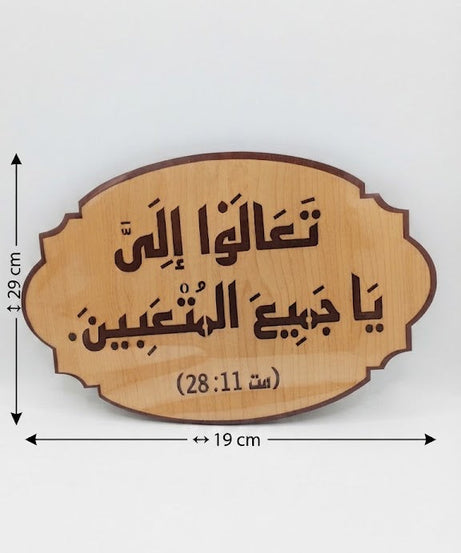 تَعَالَوْا إِلَيَّ
يَا جَمِيعَ المُتْعَبِينَ.
(مت 28:11)
↔ 29 cm
↔ 19 cm